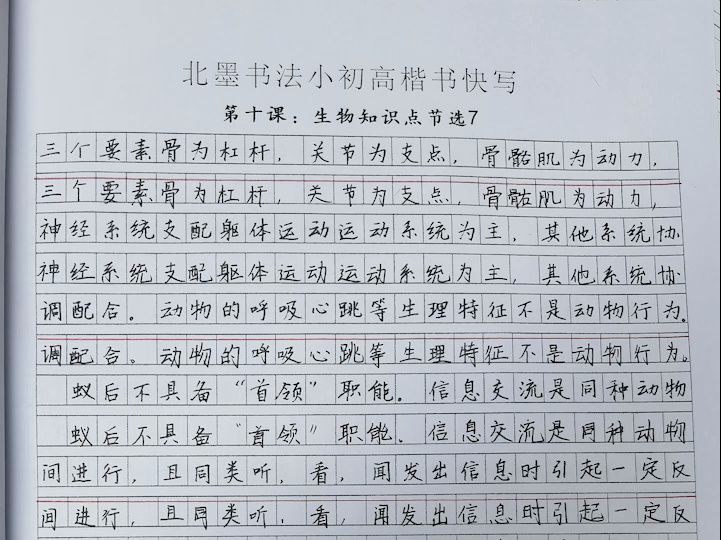 北墨书法小初高楷书快写
第十课：生物知识点节选7
三个要素骨为杠杆，关节为支点，骨骼肌为动力，
三个要素骨为杠杆，关节为支点，骨骼肌为动力，
神经系统支配躯体运动运动系统为主，其他系统协
神经系统支配躯体运动运动系统为主，其他系统协
调配合。动物的呼吸心跳等生理特征不是动物行为。
调配合。动物的呼吸心跳等生理特征不是动物行为。
蚁后不具备“首领”职能。信息交流是同种动物
蚁后不具备“首领”职能．信息交流是同种动物
间进行，且同类听，看，闻发出信息时引起一定反
间进行，且同类听．看，闻发出信息时引起一定反